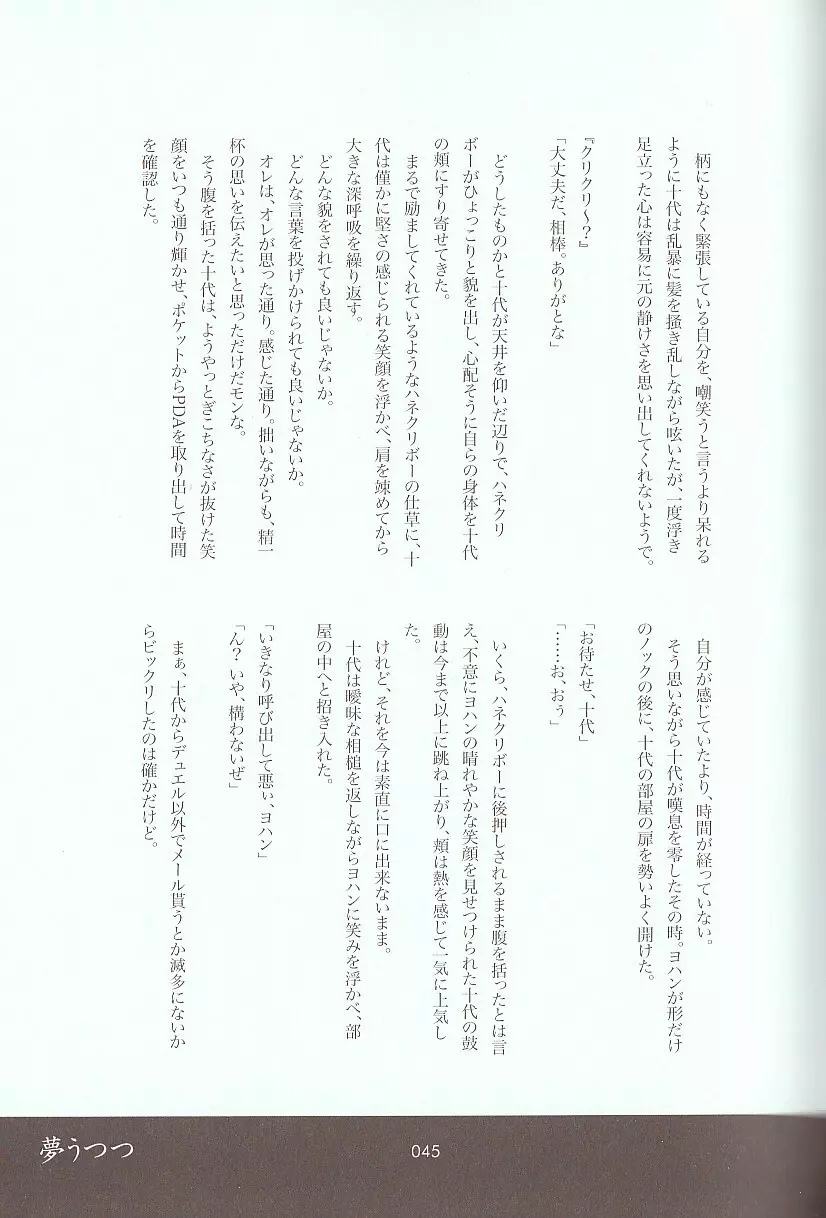 柄にもなく緊張している自分を、嘲笑うと言うより呆れる
ように十代は乱暴に髪を掻き乱しながら呟いたが、一度浮き
足立った心は容易に元の静けさを思い出してくれないようで。
『クリクリ〜？』
「大丈夫だ、相棒。ありがとな」
どうしたものかと十代が天井を仰いだ辺りで、ハネクリ
ボーがひょっこりと貌を出し、心配そうに自らの身体を十代
の頬にすり寄せてきた。
まるで励ましてくれているようなハネクリボーの仕草に、十
代は僅かに堅さの感じられる笑顔を浮かべ、肩を竦めてから
大きな深呼吸を繰り返す。
どんな貌をされても良いじゃないか。
どんな言葉を投げかけられても良いじゃないか。
オレは、オレが思った通り。感じた通り。拙いながらも、精一
杯の思いを伝えたいと思っただけだモンな。
そう腹を括った十代は、ようやっとぎこちなさが抜けた笑
顔をいつも通り輝かせ、ポケットからPDAを取り出して時間
を確認した。
自分が感じていたより、時間が経っていない。
そう思いながら十代が嘆息を零したその時。ヨハンが形だけ
のノックの後に、十代の部屋の扉を勢いよく開けた。
「お待たせ、十代」
「……お、おぅ」
いくら、ハネクリボーに後押しされるまま腹を括ったとは言
え、不意にヨハンの晴れやかな笑顔を見せつけられた十代の鼓
動は今まで以上に跳ね上がり、頬は熱を感じて一気に上気し
た。
けれど、それを今は素直に口に出来ないまま。
十代は曖昧な相槌を返しながらヨハンに笑みを浮かべ、部
屋の中へと招き入れた。
「いきなり呼び出して悪ぃ、ヨハン」
「ん？ いや、構わないぜ」
まぁ、十代からデュエル以外でメール貰うとか滅多にないか
らビックリしたのは確かだけど。
夢うつつ
045